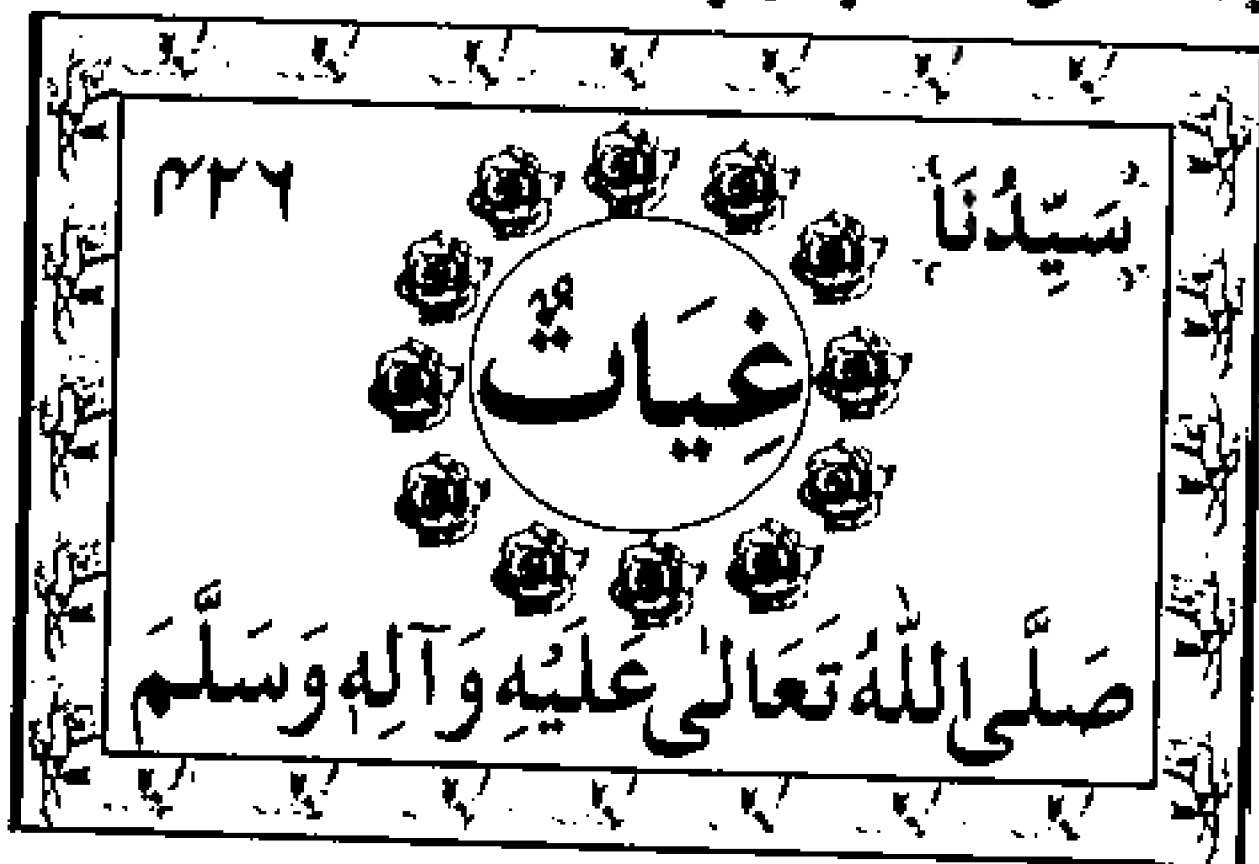 سَيِّدُنَا ٣٢٦
غِيَاثٌ
صَلَّى اللّٰهُ تَعَالٰى عَلَيْهِ وَآلِهٖ وَسَلَّمَ